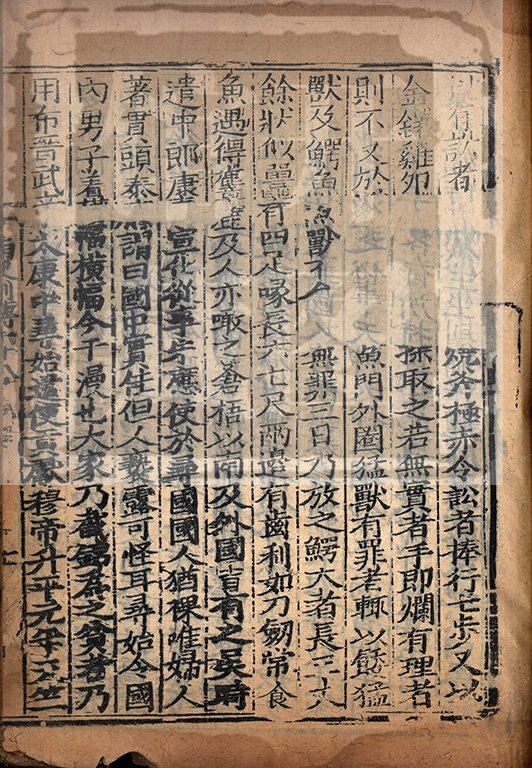 有訟者燒斧極赤令訟者捧行七步又以
金鐶雞卵探取之若無實者手即爛有理者
則不又於魚門外圈猛獸有罪者輒以餧猛
獸及鰐魚魚獸不無罪三日乃放之鰐大者長二丈
餘狀似鼉有四足喙長六七尺兩邊有齒利如刀劒常食
魚遇得麞鹿及人亦噉之蒼梧以南及外國皆有之吳時
遣中郎康宣化從事朱應使於尋國國人猶裸唯婦人
著貫頭泰謂曰國中實佳但人褻露可怪耳尋始令國
內男子着橫幅橫幅今干漫也大家乃截錦為之貧者乃
用布晉武太康中尋始遣使貢獻穆帝升平元年王竺